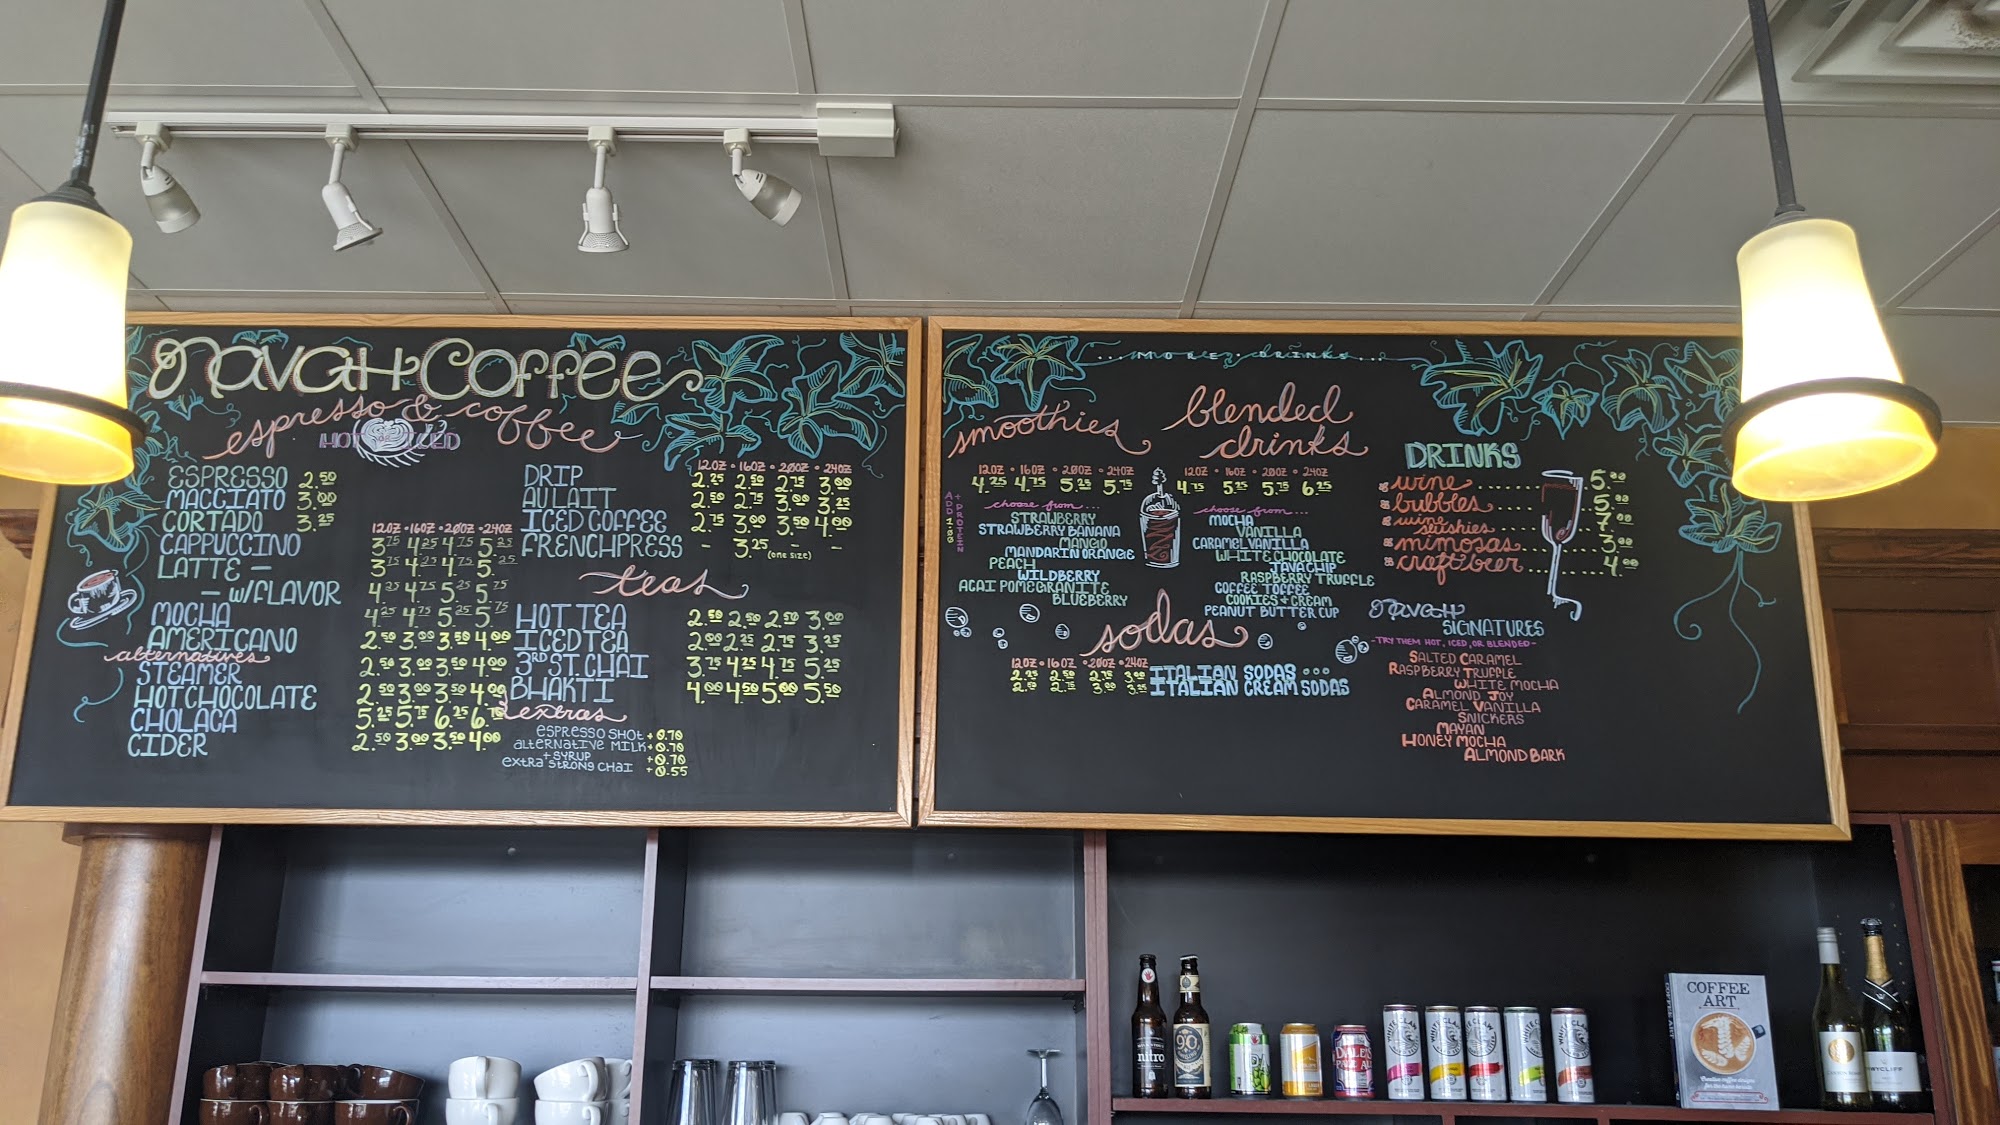 Navah Coffee
espresso & coffee
HOT or ICED
ESPRESSO 2.50
MACCIATO 3.00
CORTADO 3.25
12OZ • 16OZ • 20OZ • 24OZ
CAPPUCCINO 3.75 4.25 4.75 5.25
LATTE — 3.75 4.25 4.75 5.25
— W/FLAVOR 4.25 4.75 5.25 5.75
MOCHA 4.25 4.75 5.25 5.75
AMERICANO 2.50 3.00 3.50 4.00
alternatives
STEAMER 2.50 3.00 3.50 4.00
HOT CHOCOLATE 2.50 3.00 3.50 4.00
CHOLACA 5.25 5.75 6.25 6.70
CIDER 2.50 3.00 3.50 4.00
12OZ • 16OZ • 20OZ • 24OZ
DRIP 2.25 2.50 2.75 3.00
AU LAIT 2.50 2.75 3.00 3.25
ICED COFFEE 2.75 3.00 3.50 4.00
FRENCHPRESS - 3.25 - -
(one size)
teas
HOT TEA 2.50 2.50 2.50 3.00
ICED TEA 2.00 2.25 2.75 3.25
3RD ST. CHAI 3.75 4.25 4.75 5.25
BHAKTI 4.00 4.50 5.00 5.50
extras
ESPRESSO SHOT +0.70
ALTERNATIVE MILK +0.70
+ SYRUP +0.70
EXTRA STRONG CHAI +0.55
...MORE • DRINKS...
smoothies
12OZ • 16OZ • 20OZ • 24OZ
4.25 4.75 5.25 5.75
ADD 1.00
+ PROTEIN
choose from...
STRAWBERRY
STRAWBERRY BANANA
MANGO
MANDARIN ORANGE
PEACH
WILDBERRY
ACAI POMEGRANITE
BLUEBERRY
blended
drinks
12OZ • 16OZ • 20OZ • 24OZ
4.75 5.25 5.75 6.25
choose from...
MOCHA
VANILLA
CARAMEL VANILLA
WHITE CHOCOLATE
JAVA CHIP
RASPBERRY TRUFFLE
COFFEE TOFFEE
COOKIES & CREAM
PEANUT BUTTER CUP
sodas
12OZ • 16OZ • 20OZ • 24OZ
2.25 2.50 2.75 3.00 ITALIAN SODAS ...
2.50 2.75 3.00 3.25 ITALIAN CREAM SODAS
DRINKS
wine ........ 5.00
bubbles ...... 5.00
wine
slushies ...... 7.00
mimosas ...... 3.00
craft beer ...... 4.00
Navah
SIGNATURES
-TRY THEM HOT, ICED, OR BLENDED-
SALTED CARAMEL
RASPBERRY TRUFFLE
WHITE MOCHA
ALMOND JOY
CARAMEL VANILLA
SNICKERS
MAYAN
HONEY MOCHA
ALMOND BARK
nitro
90
DALE'S
PALE ALE
WHITE CLAW
WHITE CLAW
WHITE CLAW
WHITE CLAW
WHITE CLAW
COFFEE
ART
COFFEE ART